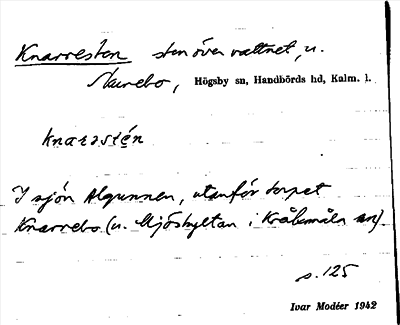 Knarresten sten över vattnet, u.
Staurebo, Högsby sn, Handbörds hd, Kalm. l.
knarəstén
I sjön Algunnen, utanför torpet
Knarrebo (u. Mjöshyltan i Kråksmåla sn).
s. 125
Ivar Modéer 1942